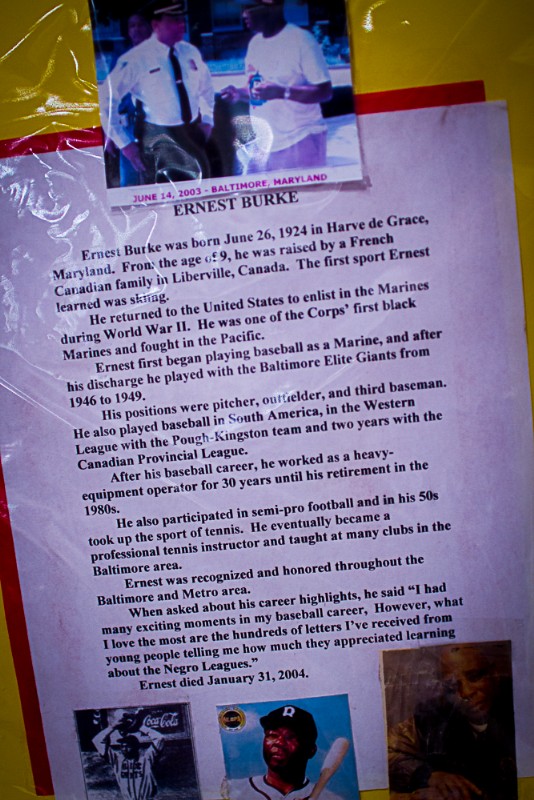 JUNE 14, 2003 - BALTIMORE, MARYLAND
ERNEST BURKE
Ernest Burke was born June 26, 1924 in Harve de Grace,
Maryland. From the age of 9, he was raised by a French
Canadian family in Liberville, Canada. The first sport Ernest
learned was skiing.
He returned to the United States to enlist in the Marines
during World War II. He was one of the Corps' first black
Marines and fought in the Pacific.
Ernest first began playing baseball as a Marine, and after
his discharge he played with the Baltimore Elite Giants from
1946 to 1949.
His positions were pitcher, outfielder, and third baseman.
He also played baseball in South America, in the Western
League with the Pough-Kingston team and two years with the
Canadian Provincial League.
After his baseball career, he worked as a heavy-
equipment operator for 30 years until his retirement in the
1980s.
He also participated in semi-pro football and in his 50s
took up the sport of tennis. He eventually became a
professional tennis instructor and taught at many clubs in the
Baltimore area.
Ernest was recognized and honored throughout the
Baltimore and Metro area.
When asked about his career highlights, he said "I had
many exciting moments in my baseball career, However, what
I love the most are the hundreds of letters I've received from
young people telling me how much they appreciated learning
about the Negro Leagues."
Ernest died January 31, 2004.
Coca-Cola